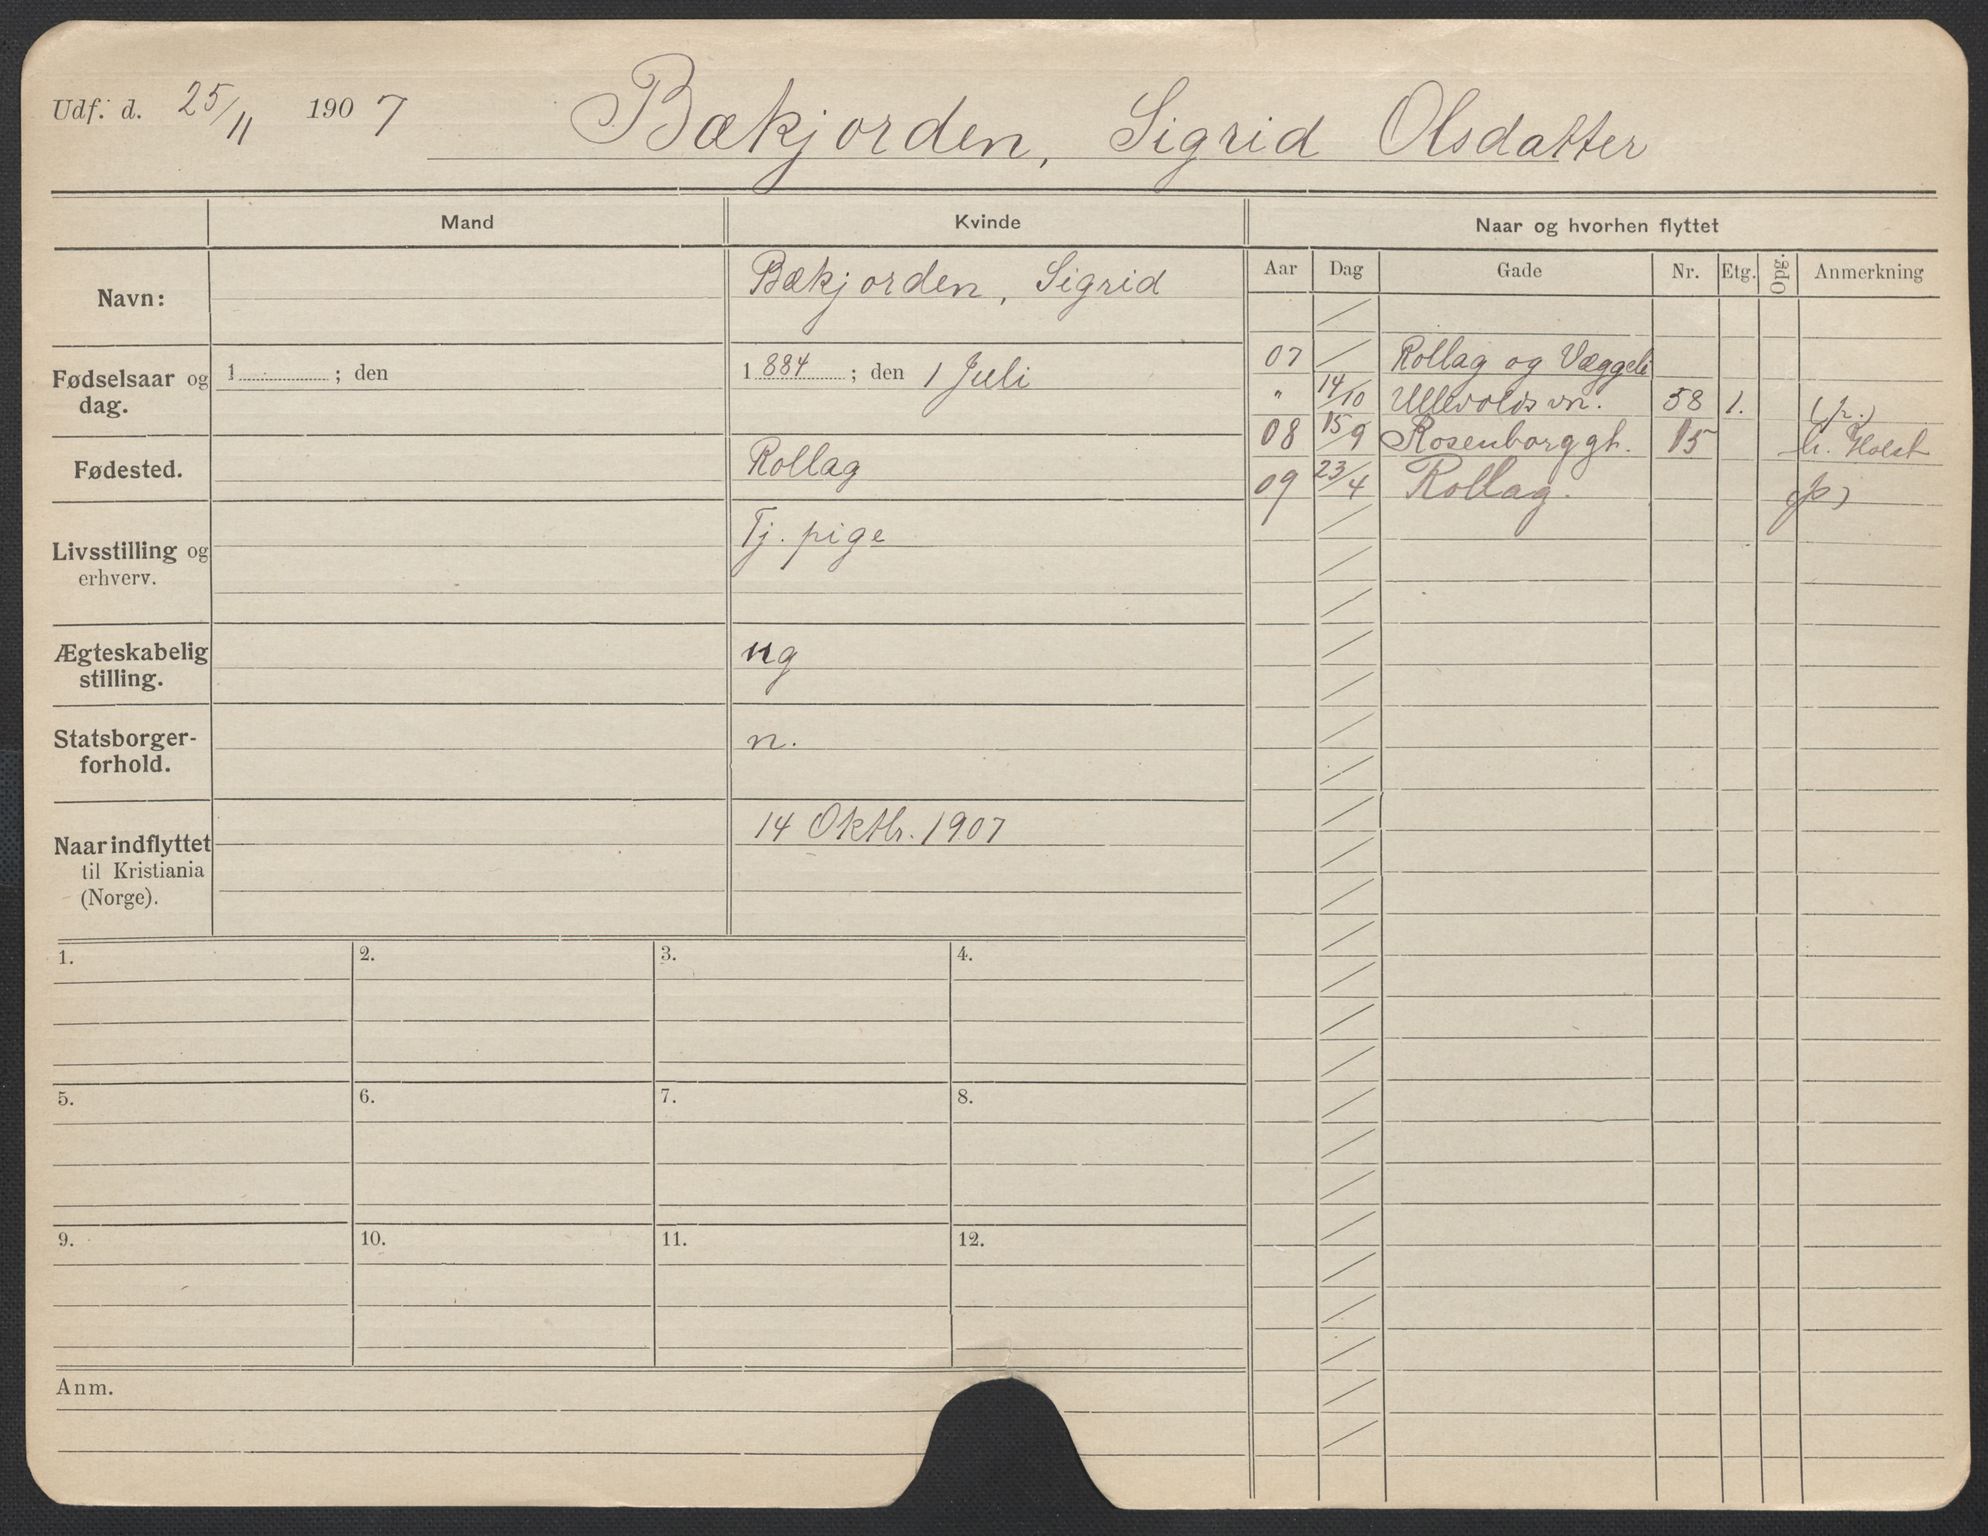 Udf. d. 25/11 1907 Bækjorden, Sigrid Olsdatter
Mand Kvinde Naar og hvorhen flyttet
Aar Dag Gade Nr. Etg. Opg. Anmerkning
Navn: Bækjorden, Sigrid
Fødselsaar og dag. 1 ; den 1884 ; den 1 Juli
Fødested. Rollag
Livsstilling og
erhverv. Tj. pige
Ægteskabelig
stilling. ug
Statsborger-
forhold. n.
Naar indflyttet
til Kristiania
(Norge). 14 Oktbr. 1907
07 Rollag og Væggeli
" 14/10 Ullevoldsvn. 58 1. (p.)
08 15/9 Rosenborggt. 15 Holst
09 23/4 Rollag. (p)
1. 2. 3. 4.
5. 6. 7. 8.
9. 10. 11. 12.
Anm.